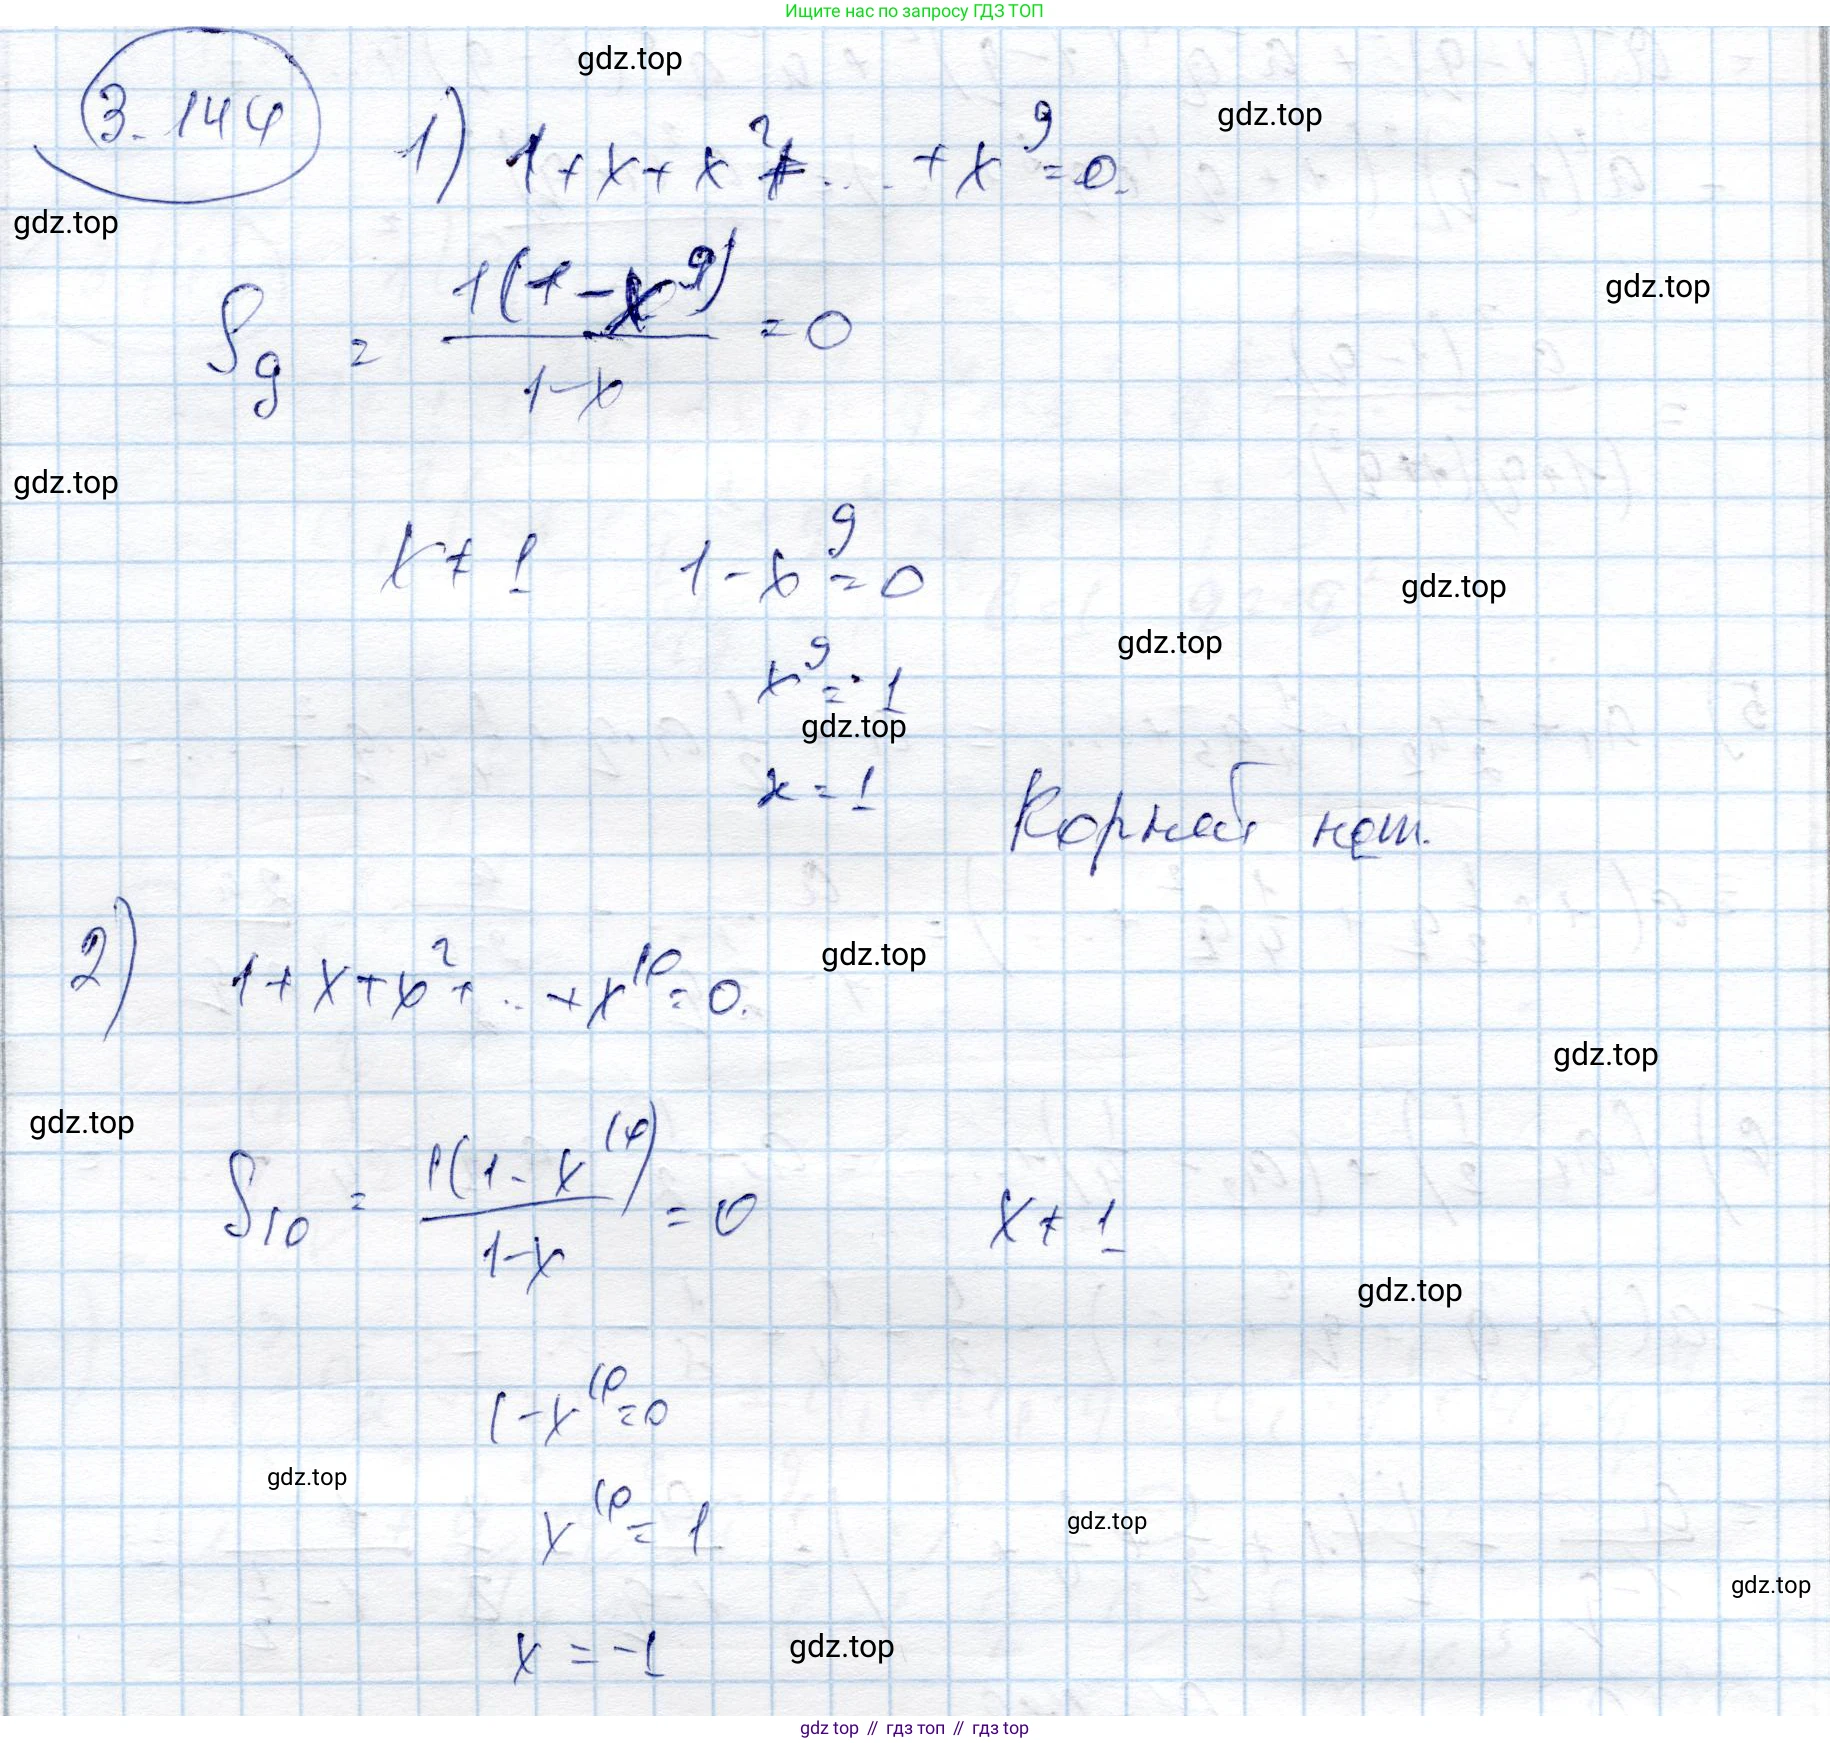 Ищите нас по запросу ГДЗ ТОП
gdz.top
3.144
1) 1 + x + x² + .... + x⁹ = 0.
gdz.top
gdz.top
S₉ = 1(1 - x⁹) / 1-x = 0
gdz.top
gdz.top
x ≠ 1 1 - x⁹ = 0
gdz.top
gdz.top
x⁹ = 1
gdz.top
x = 1 Корней нет.
2) 1 + x + x² + ... + x¹⁰ = 0.
gdz.top
gdz.top
gdz.top
S₁₀ = 1(1 - x¹⁰) / 1-x = 0 x ≠ 1
gdz.top
1 - x¹⁰ = 0
gdz.top
x¹⁰ = 1
gdz.top
gdz.top
x = -1
gdz.top
gdz top // гдз топ // гдз top